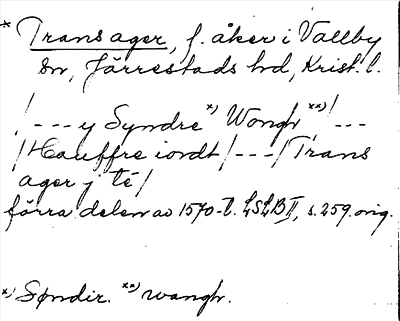 * Trans ager, f. åker i Vallby
sn, Järrestads hd, Krist. l.
/--- y Syndre *) Wongh **) /---
/Hauffre iordt/---/Trans
ager j té/
förra delen av 1570-t. LSLB II, s. 259 orig.
*) Søndir. **) wangh.